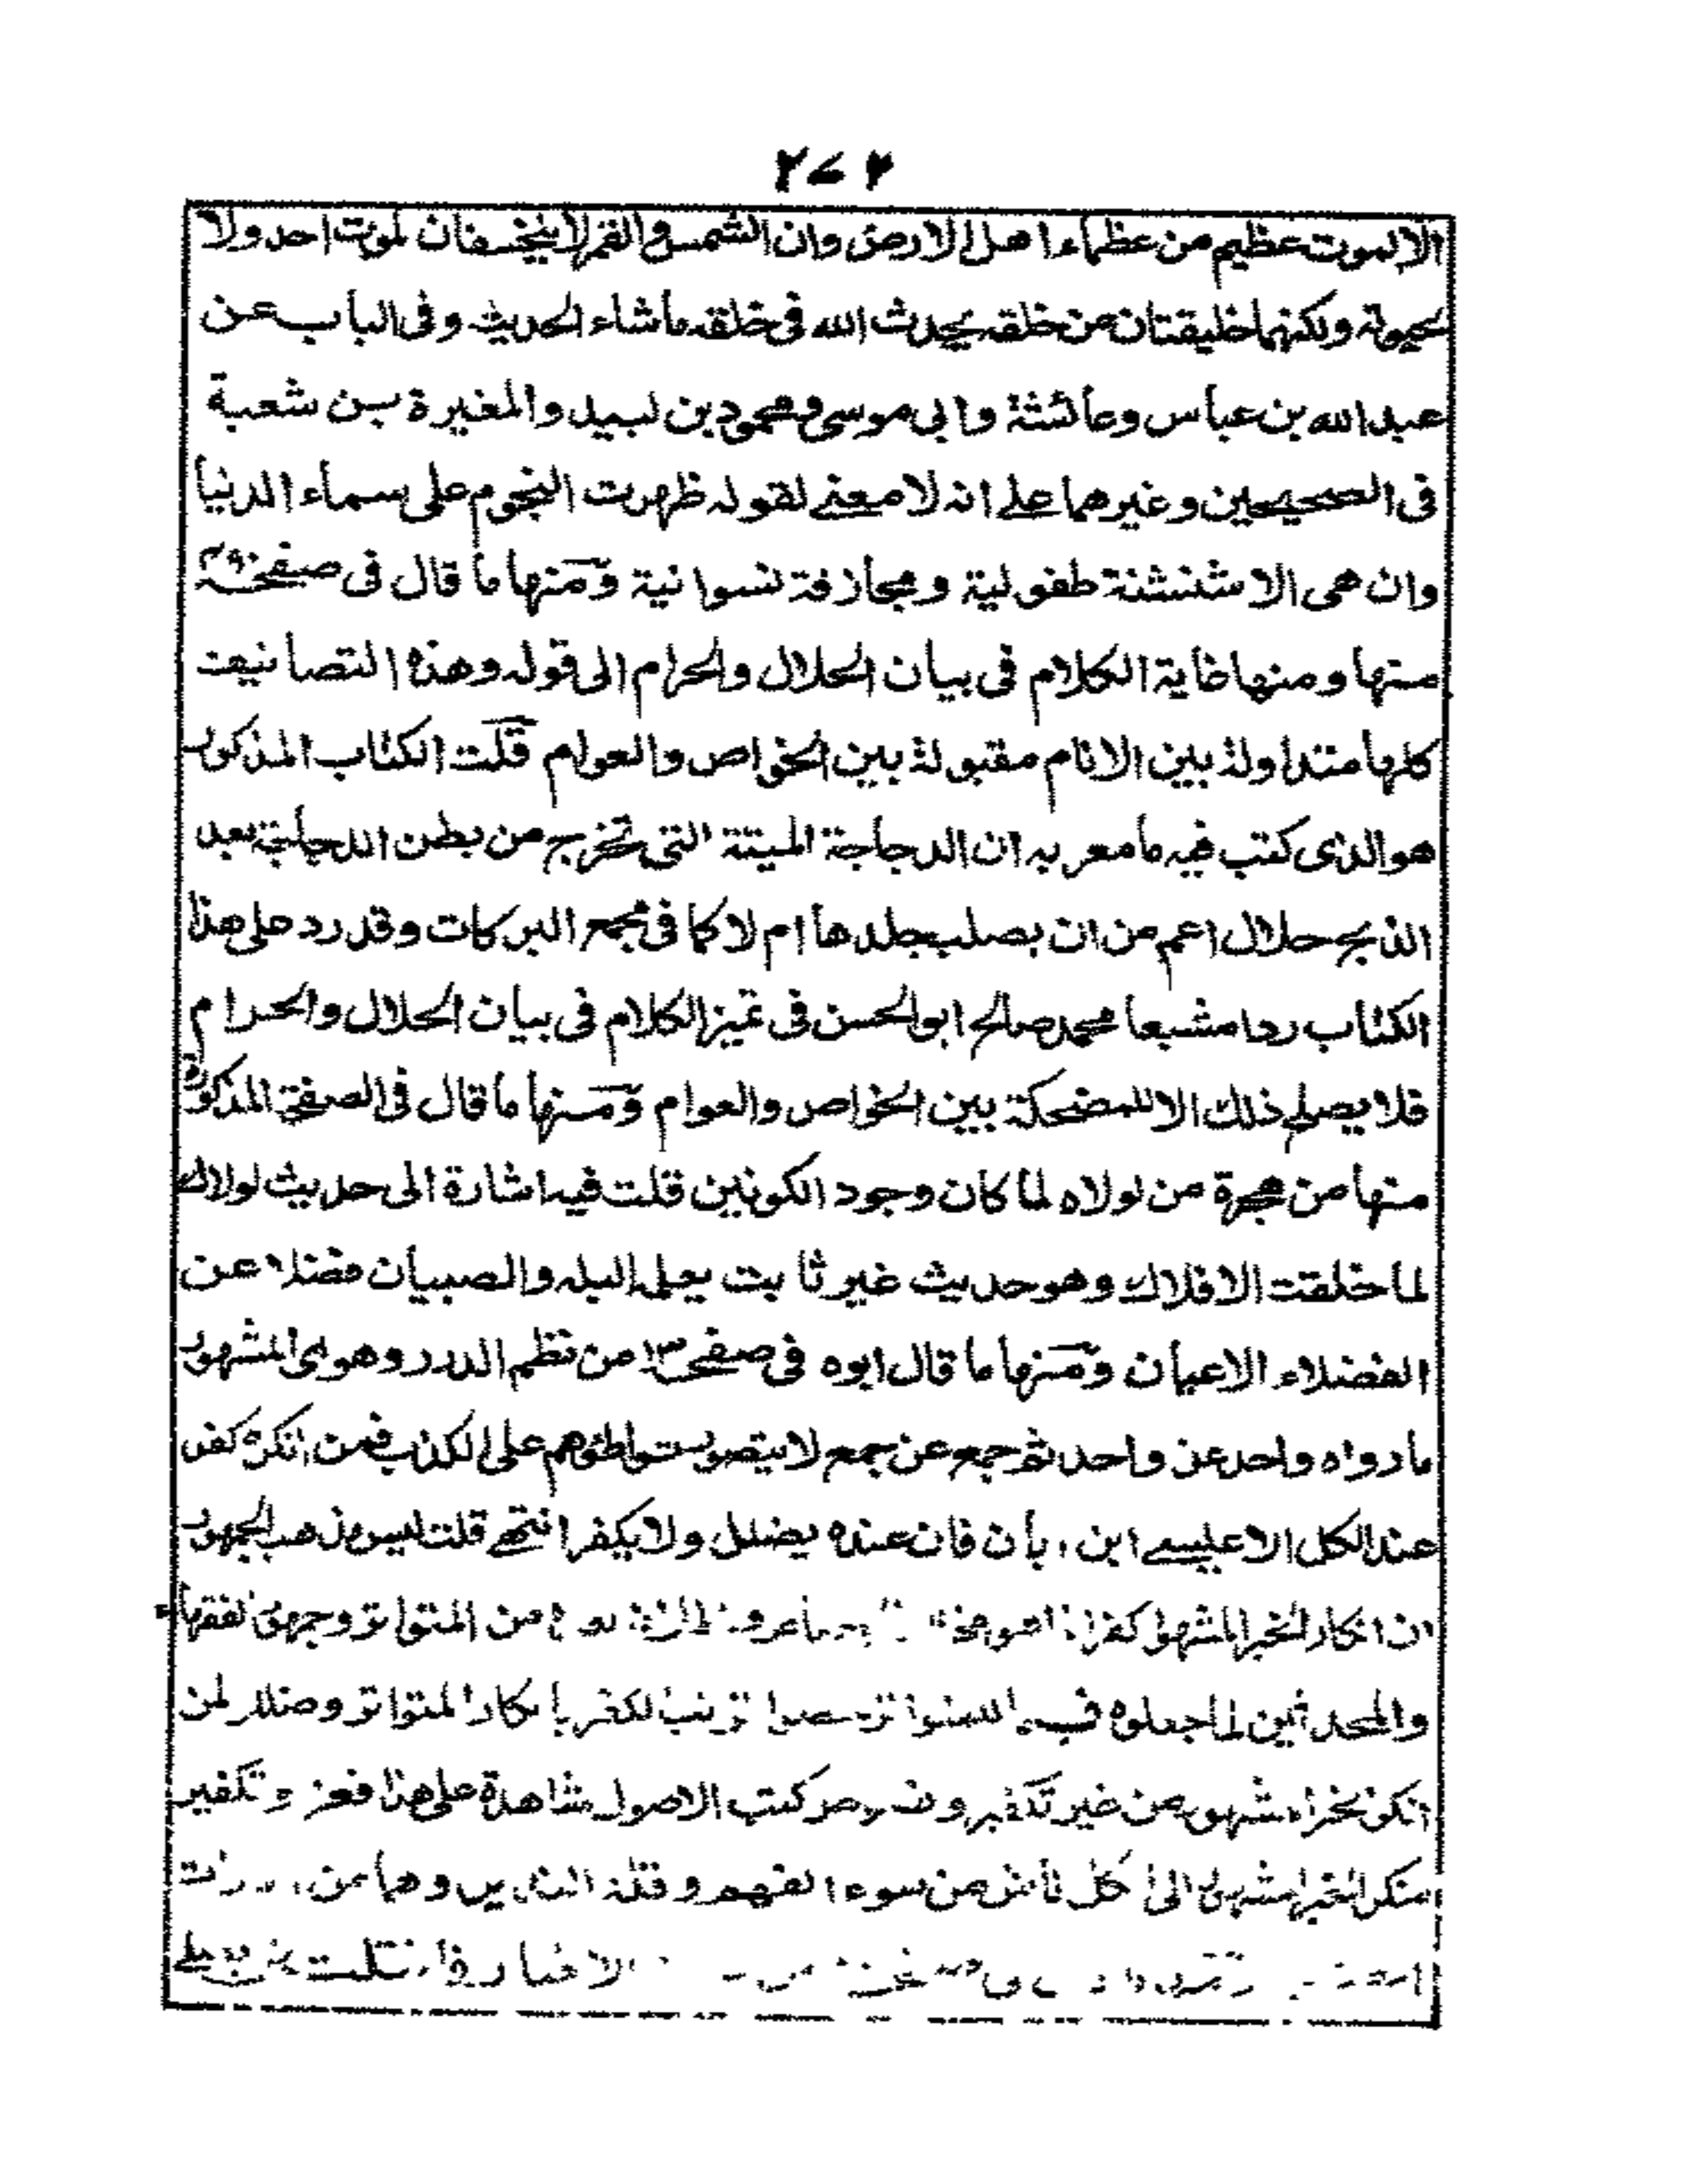 ٢٧٢
الا لموت عظيم من عظماء اهل الارض وان الشمس والقمر لا ينخسفان لموت احد ولا
لحيوته ولكنهما خليقتان من خلقه يحدث الله فى خلقه ما شاء الحديث وفى الباب عن
عبد الله بن عباس وعائشة وابى موسى ومحمود بن لبيد والمغيرة بن شعبة
فى الصحيحين وغيرهما على انه لا معنے لقوله ظهرت النجوم على سماء الدنيا
وان هى الا شنشنة طفولية ومجازفة نسوانية ومنها ما قال فى صفحة
منها ومنها غاية الكلام فى بيان الحلال والحرام الى قوله وهذه التصانيف
كلها متداولة بين الانام مقبولة بين الخواص والعوام قلت الكتاب المذكور
هو الذى كتب فيه ما معربه ان الدجاجة الميتة التى تخرج من بطن الدجاجة بعد
الذبح حلال اعم من ان يصلب جلدها ام لا كما فى مجمع البركات وقد رد على هذا
الكتاب ردا مشبعا محمد صالح ابو الحسن فى تميز الكلام فى بيان الحلال والحرام
فلا يصلح ذلك الا للمضحكة بين الخواص والعوام ومنها ما قال فى الصفحة المذكورة
منها من هجرة من لولاه لما كان وجود الكونين قلت فيه اشارة الى حديث لولاك
لما خلقت الافلاك وهو حديث غير ثابت يعلم البله والصبيان فضلا عن
الفضلاء الاعيان ومنها ما قال ابوه فى صفحة ١٣ من نظم الدرر وهو اى المشهور
ما رواه واحد عن واحد ثم جمع عن جمع لا يتصور تواطؤهم على الكذب فمن انكره كفر
عند الكل الا عيسے ابن ابان فان عنده يضلل ولا يكفر انتهے قلت ليس مذهب الجمهور
ان انكار الخبر المشهور كفر من المتواتر وجمهور الفقهاء
والمحدثين لما جعلوه بانكار المتواتر وضلل لمن
انكر خبرا مشهورا من غير تكفير كتب الاصول شاهدة على هذا فعزو تكفير
منكر الخبر المشهور الى كل ناش من سوء الفهم وقلة التدبر وهما من
الاخبار فان قلت